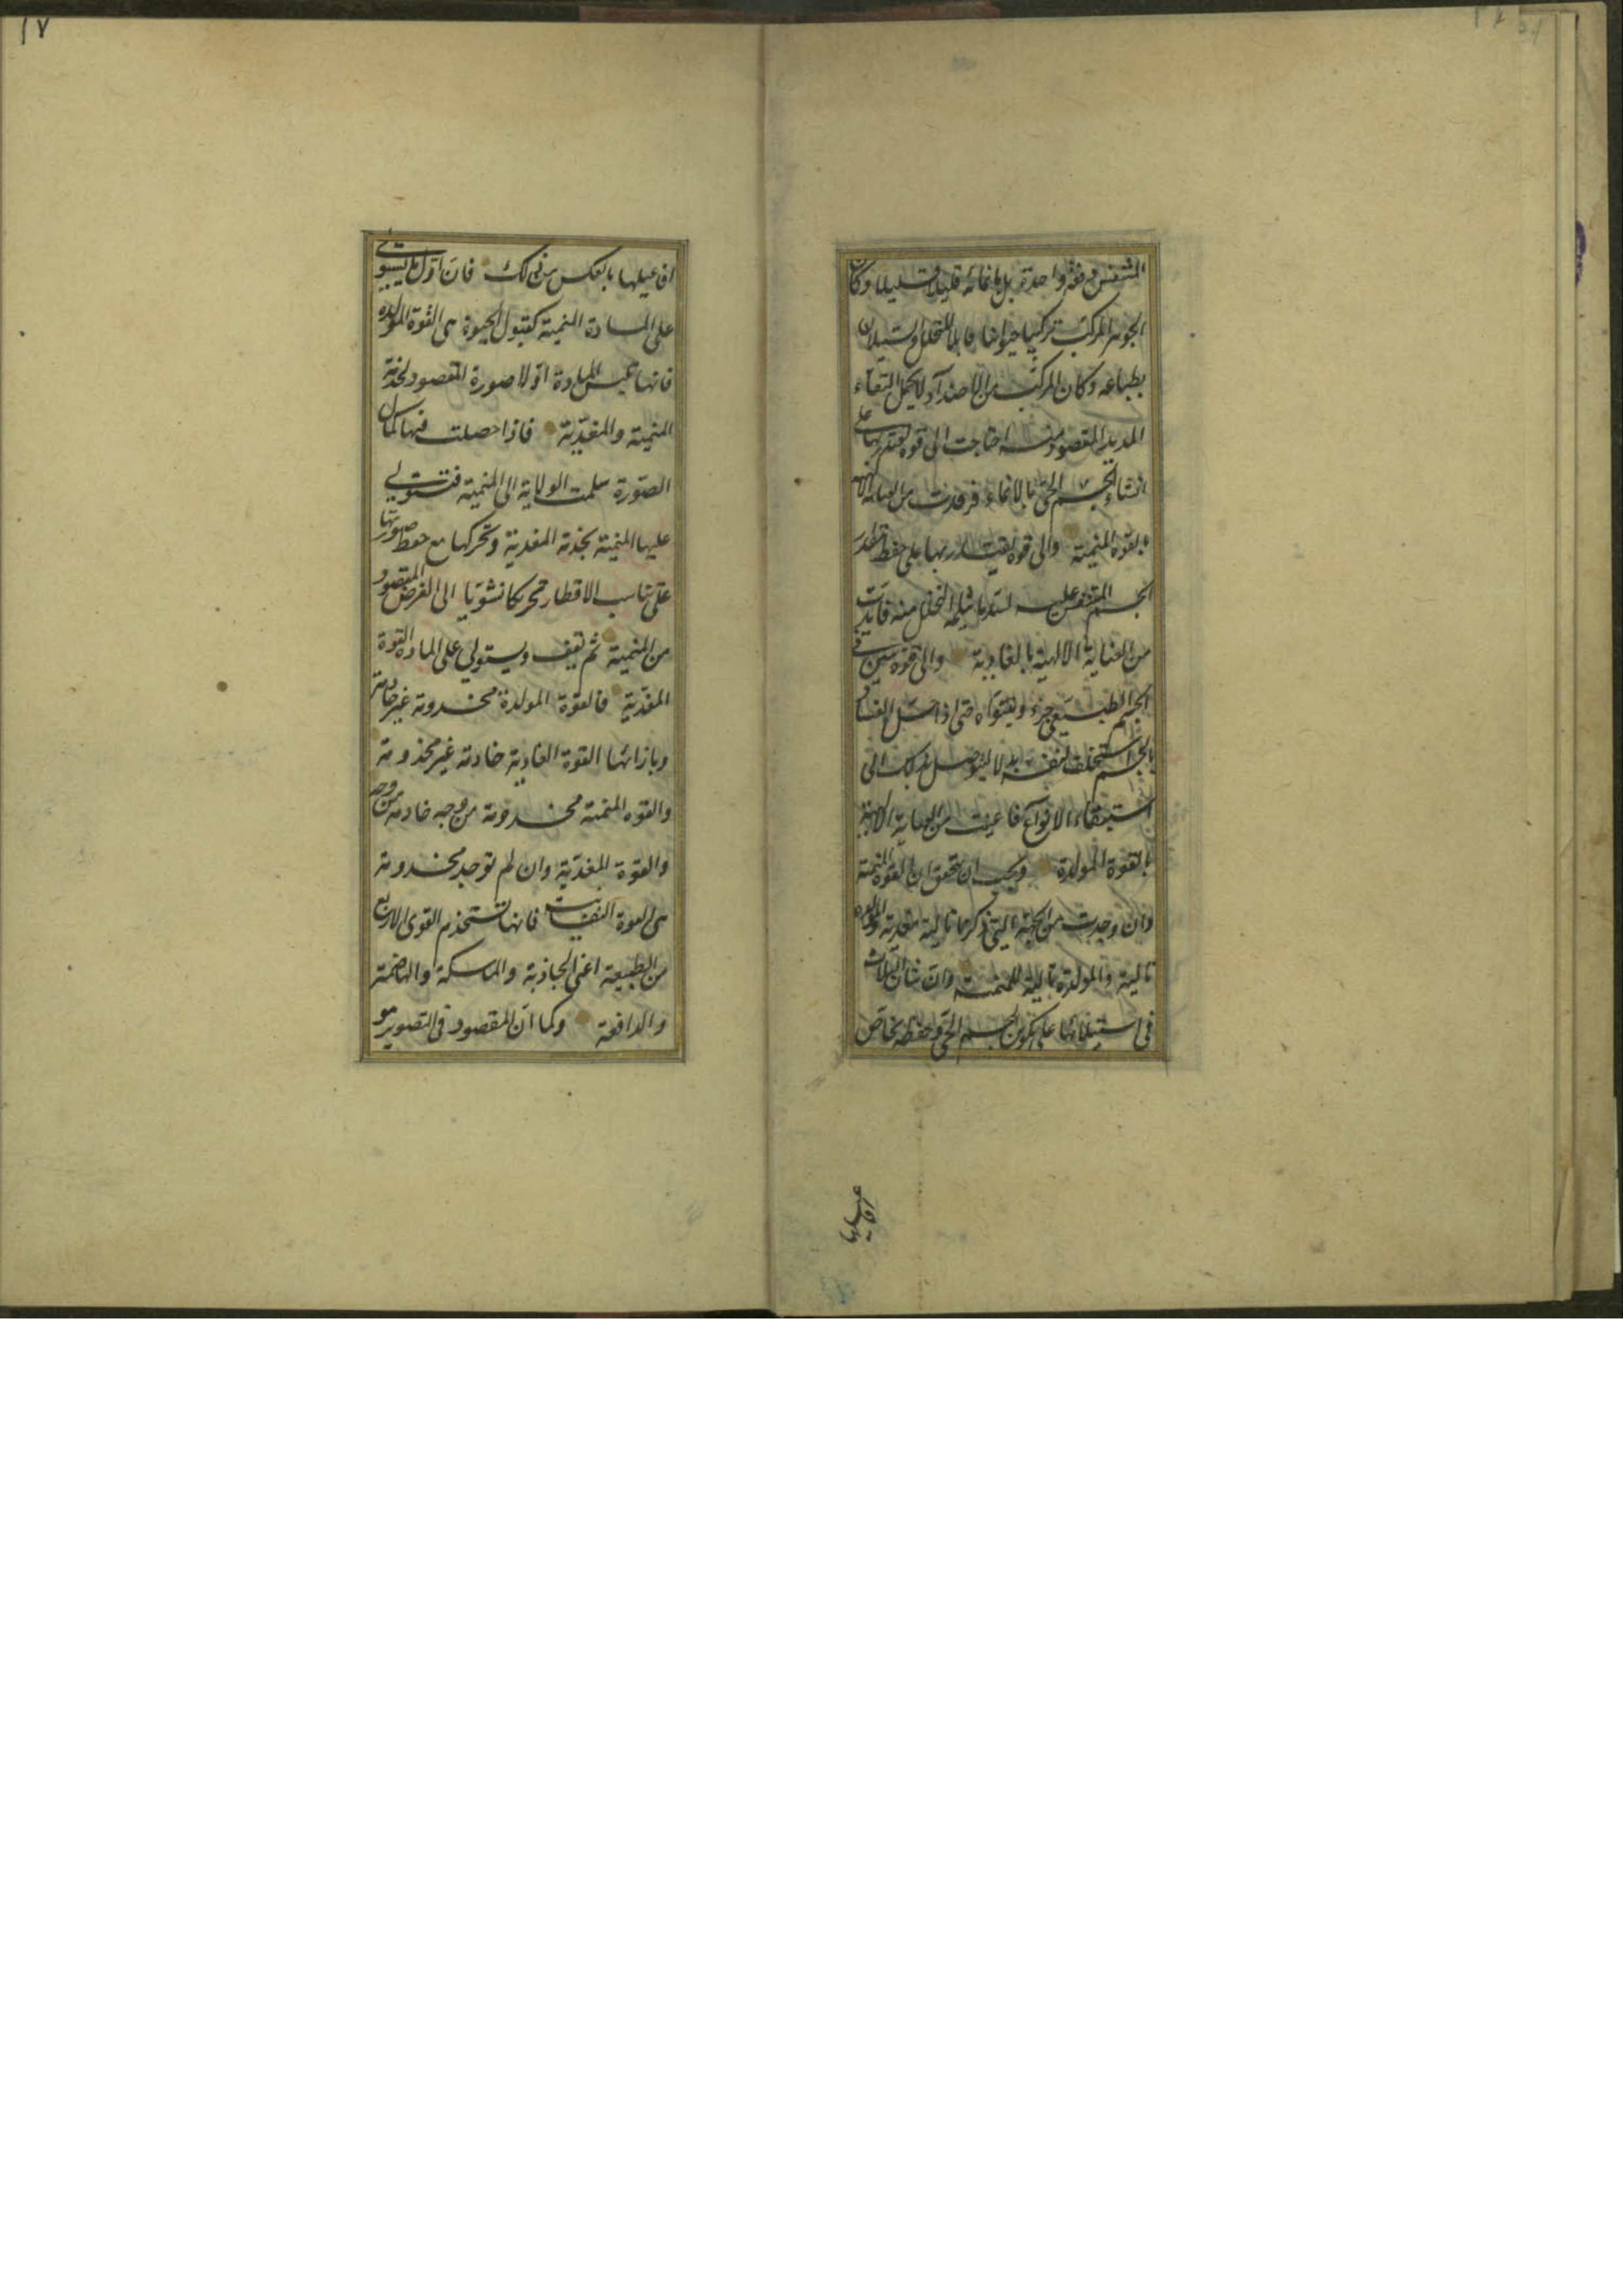 المتنفس دفعة واحدة بل بانمائه قليلا قليلا وكان
الجوهر المركب تركيبا حيوانيا قابلا للتحلل والسيلان
بطباعه وكان المركب من الاضداد لا يحتمل البقاء
المديد المقصود منه احتاجت الى قوة يقتدر بها على
انشاء الجسم الحي بالانماء فرفدت من العناية الالهية
بالقوة المنمية والى قوة يقتدر بها على حفظ مقدار
الجسم المتنفس عليه لسد ما يثلمه التحلل منه فايدت
من العناية الالهية بالغاذية والى قوة
الجسم الطبيعي جزء حتى اذا حل الفساد
بالجسم استخلفت لنفسه بدلا ليتوصل بذلك الى
استبقاء الانواع فاعينت من العناية الالهية
بالقوة المولدة ويجب ان يتحقق ان القوة المنمية
وان وجدت من الجهة التي ذكرنا تالية للمغذية والمولدة
تالية والمولدة تالية للمنمية وان شان الثلاث
في استيلائها على تكون الجسم الحي وحفظه بخاص
١٧
افاعيلها بالعكس من ذلك فان اول ما يستولي
على المادة المنمية كقبول الحيوة هي القوة المولدة
فانها تلبس المادة اولا صورة المقصود بخدمة
المنمية والمغذية فاذا حصلت فيها كمال
الصورة سلمت الولاية الى المنمية فتستولي
عليها المنمية بخدمة المغذية وتحركها مع حفظ صورتها
على تناسب الاقطار تحريكا نشويا الى الغرض المقصود
من المنمية ثم تقف ويستولي على المادة القوة
المغذية فالقوة المولدة مخدومة غير خادمة
وبازائها القوة الغاذية خادمة غير مخدومة
والقوة المنمية مخدومة من وجه خادمة من وجه
والقوة المغذية وان لم توجد مخدومة
هي القوة النفسانية فانها تستخدم القوى الاربع
من الطبيعة اعني الجاذبة والماسكة والهاضمة
والدافعة وكما ان المقصود في التصوير هو